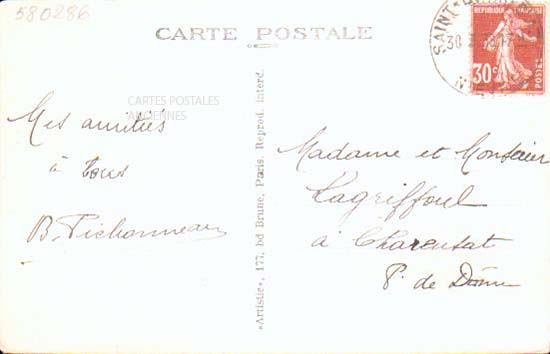 580286
CARTE POSTALE
SAINT
30
REPUBLIQUE FRANÇAISE
30c
POSTES
CARTES POSTALES
ANCIENNES
Mes amitiés
à tous
B. Pichonneau
«Artistic», 177, bd Brune, Paris. Reprod. interd.
Madame et Monsieur
Lagriffoul
à Charensat
P. de Dôme